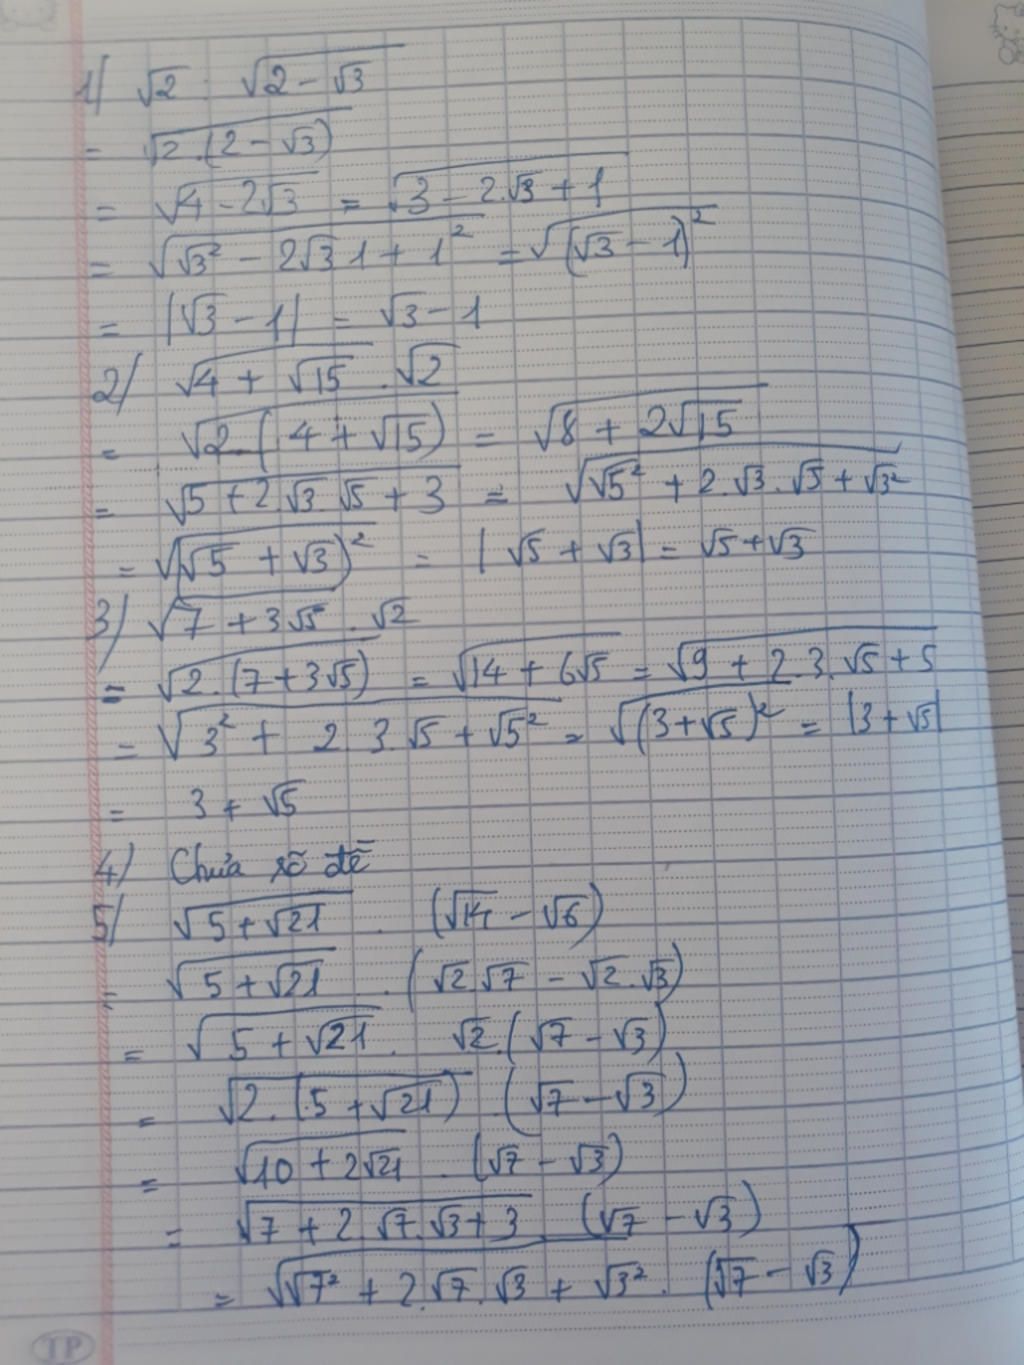 1/ √2 · √(2 − √3)
= √(2.(2 − √3))
= √(4 − 2√3) = √(3 − 2.√3 + 1)
= √(√3² − 2√3 1 + 1²) = √((√3 − 1)²)
= |√3 − 1| = √3 − 1
2/ √(4 + √15) . √2
= √(2.(4 + √15)) = √(8 + 2√15)
= √(5 + 2.√3.√5 + 3) = √(√5² + 2.√3.√5 + √3²)
= √((√5 + √3)²) = |√5 + √3| = √5 + √3
3/ √(7 + 3√5) . √2
= √(2.(7 + 3√5)) = √(14 + 6√5) = √(9 + 2.3.√5 + 5)
= √(3² + 2.3.√5 + √5²) = √((3 + √5)²) = |3 + √5|
= 3 + √5
4/ Chưa rõ đề
5/ √(5 + √21) . (√14 − √6)
= √(5 + √21) . (√2.√7 − √2.√3)
= √(5 + √21) . √2.(√7 − √3)
= √(2.(5 + √21)) . (√7 − √3)
= √(10 + 2√21) . (√7 − √3)
= √(7 + 2.√7.√3 + 3) (√7 − √3)
= √(√7² + 2.√7.√3 + √3²) . (√7 − √3)
TP